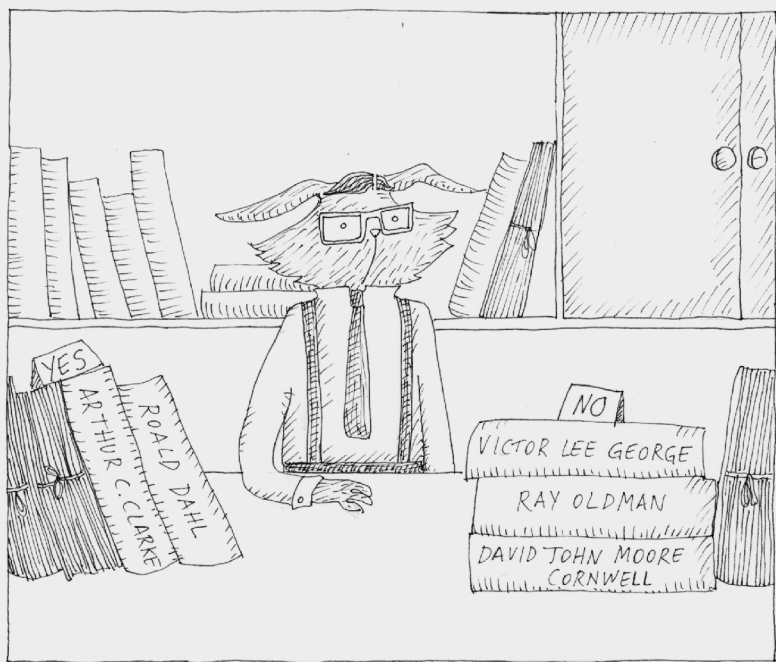 YES
ARTHUR C. CLARKE
ROALD DAHL
NO
VICTOR LEE GEORGE
RAY OLDMAN
DAVID JOHN MOORE
CORNWELL